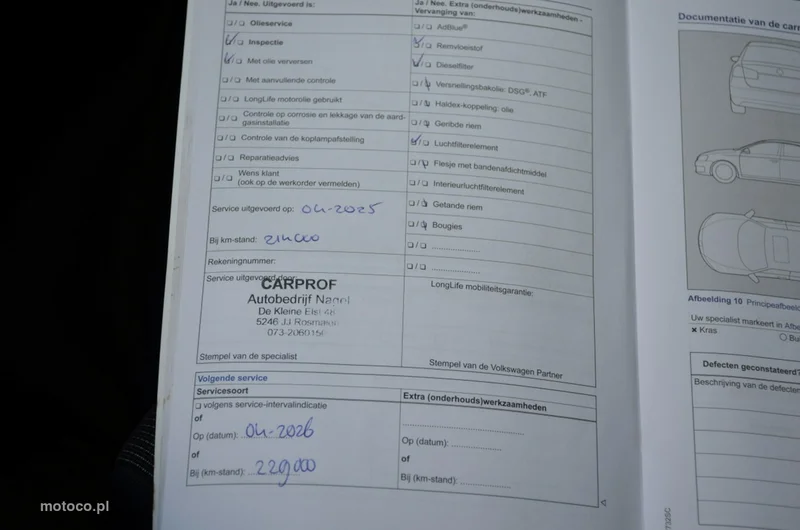 Ja / Nee. Uitgevoerd is:
❏ / ❏ Olieservice
❏ / ❏ Inspectie
❏ / ❏ Met olie verversen
❏ / ❏ Met aanvullende controle
❏ / ❏ LongLife motorolie gebruikt
❏ / ❏ Controle op corrosie en lekkage van de aard-
gasinstallatie
❏ / ❏ Controle van de koplampafstelling
❏ / ❏ Reparatieadvies
❏ / ❏ Wens klant
(ook op de werkorder vermelden)
Service uitgevoerd op: 04-2025
Bij km-stand: 214000
Rekeningnummer:
Service uitgevoerd door:
CARPROF
Autobedrijf Nagel
De Kleine Elst
5246 JJ Rosmalen
Stempel van de specialist
Ja / Nee. Extra (onderhouds)werkzaamheden -
Vervanging van:
❏ / ❏ AdBlue®
❏ / ❏ Remvloeistof
❏ / ❏ Dieselfilter
❏ / ❏ Versnellingsbakolie: DSG®, ATF
❏ / ❏ Haldex-koppeling: olie
❏ / ❏ Geribde riem
❏ / ❏ Luchtfilterelement
❏ / ❏ Flesje met bandenafdichtmiddel
❏ / ❏ Interieurluchtfilterelement
❏ / ❏ Getande riem
❏ / ❏ Bougies
❏ / ❏ ....................
❏ / ❏ ....................
LongLife mobiliteitsgarantie:
Stempel van de Volkswagen Partner
Volgende service
Servicesoort
❏ volgens service-intervalindicatie
of
Op (datum): 04-2026
of
Bij (km-stand): 229000
Extra (onderhouds)werkzaamheden
Op (datum): ..................
of
Bij (km-stand): ..................
Documentatie van de carr
Afbeelding 10 Principeafbeeld
Uw specialist markeert in Afbe
× Kras
○ Bu
Defecten geconstateerd?
Beschrijving van de defecten
motoco.pl